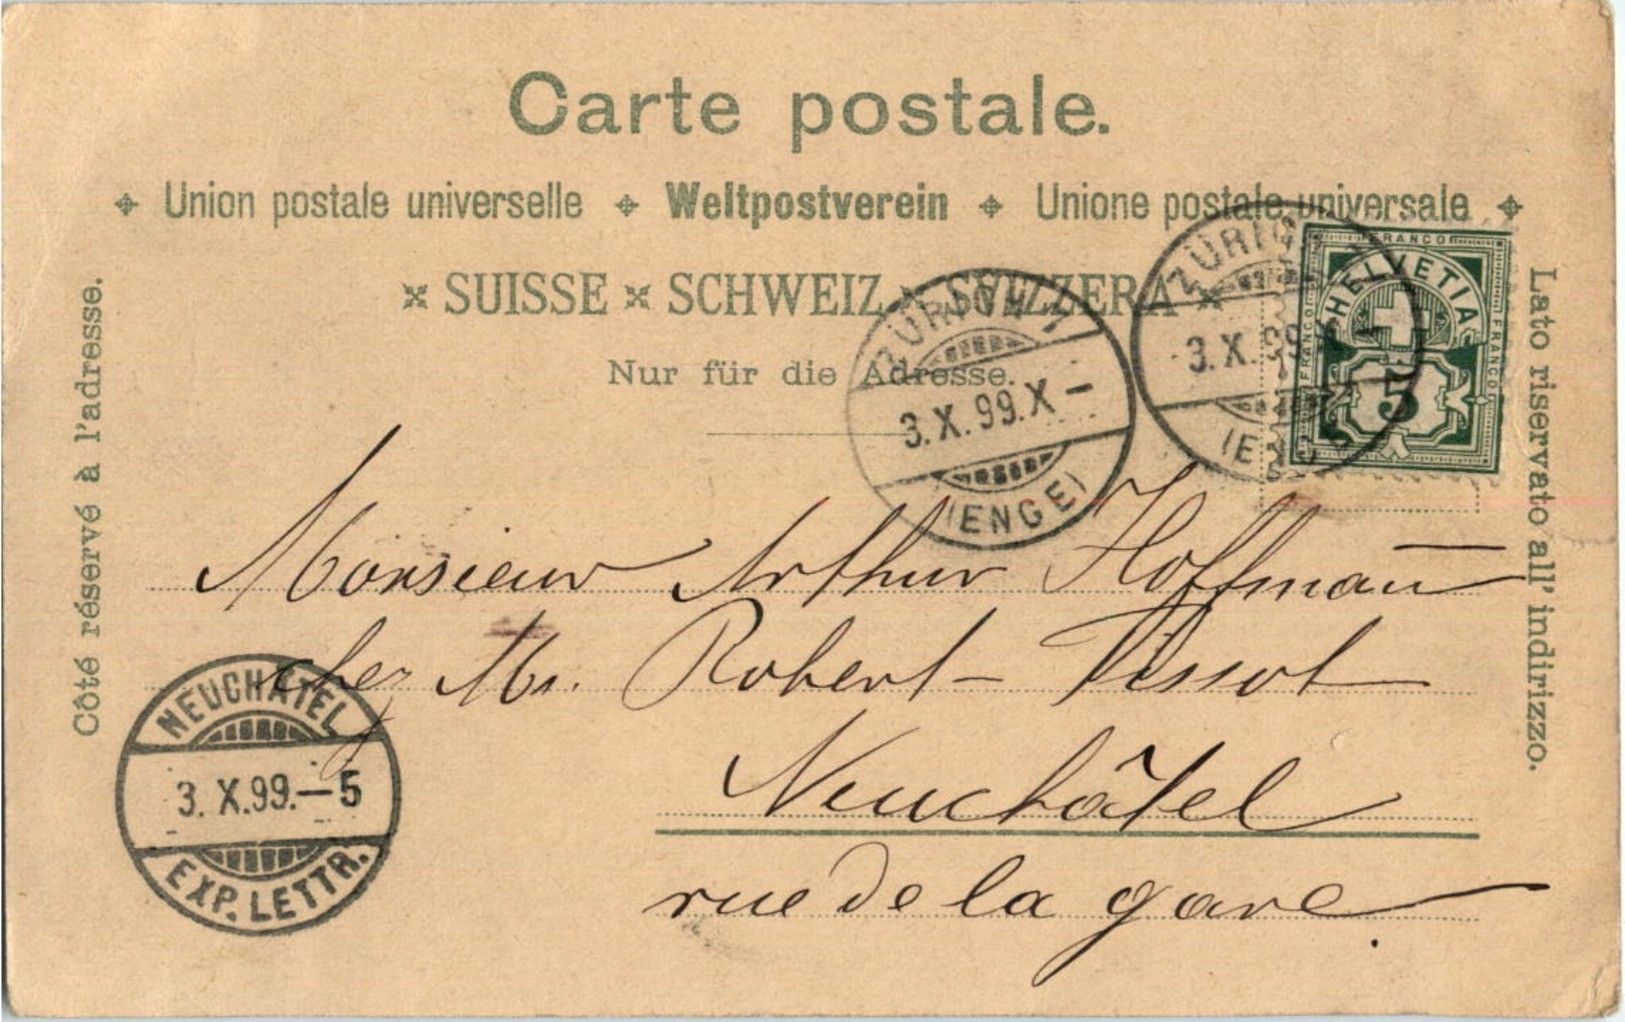 Carte postale.
Union postale universelle Weltpostverein Unione postale universale
SUISSE SCHWEIZ SVIZZERA
Nur für die Adresse.
Côté réservé à l'adresse.
Lato riservato all' indirizzo.
FRANCO
HELVETIA
FRANCO
FRANCO
5
ZÜRICH
3. X. 99.
ZÜRICH 1
3. X. 99. X –
(ENGE)
Monsieur Arthur Hoffman̄
chez Mr. Robert-Tissot
Neuchâtel
rue de la gare
NEUCHATEL
3. X. 99. – 5
EXP. LETTR.